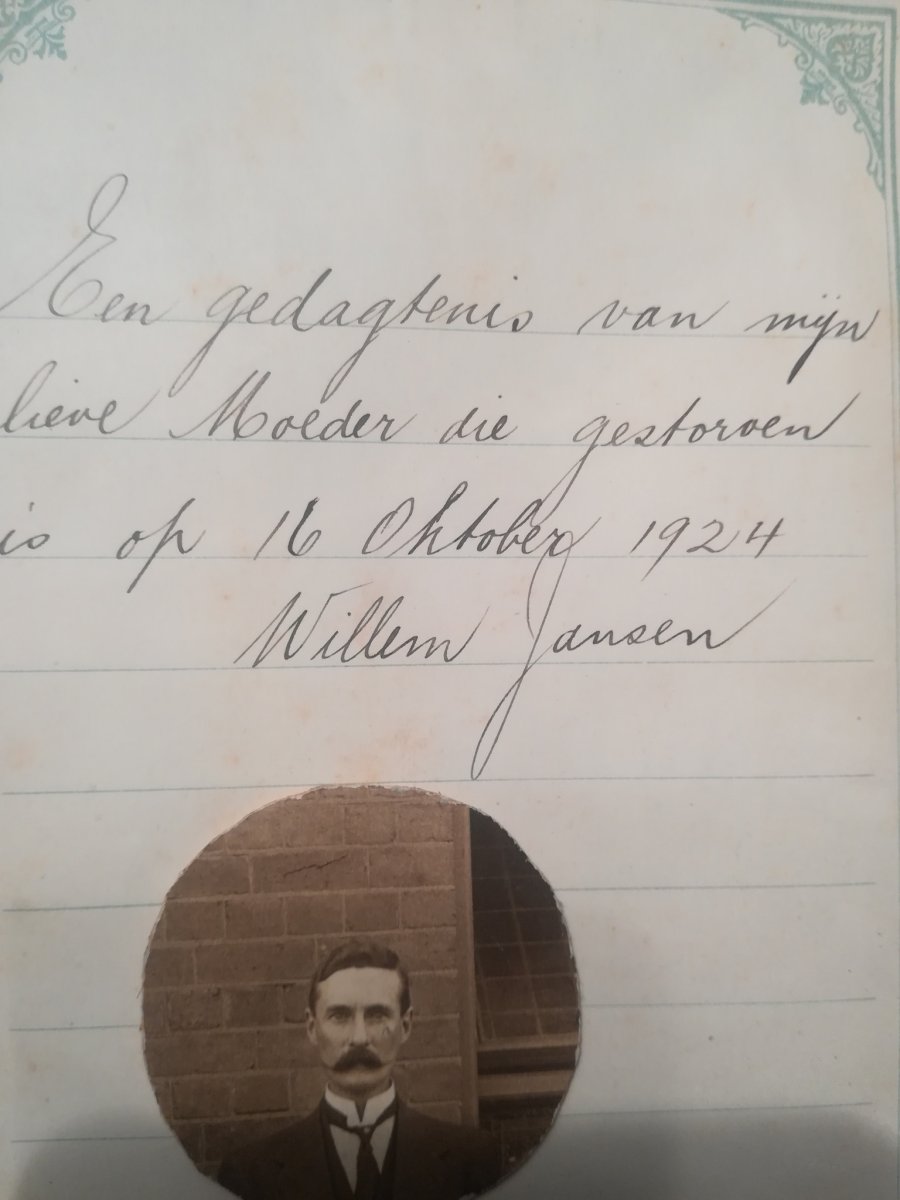 Een gedagtenis van mijn
lieve Moeder die gestorven
is op 16 Oktober 1924
Willem Jansen